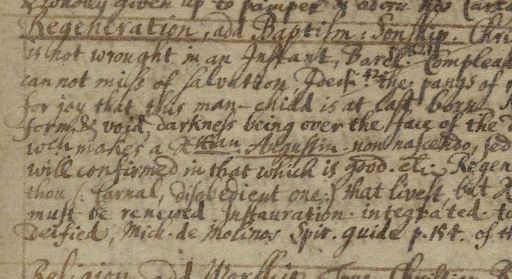 wholly given up to pamper & adorn his Carca
Regeneration, add Baptism: Sonship. Chri
is not wrought in an Infant, Barcl. Compleat
cannot miss of salvation Idem. 424 the pangs of
for joy that this man-child is at last born
form & void, darkness being over the face of the
wch makes a Xtian. Augustin. non nascendo, sed
will confirmed in that which is good. etc. Regen
thou (: Carnal, disobedient one:) that livest, but
must be renewed Instauration. integrated. to
Deified, Mich. de Molinos Spir. guide p. 154. of th
Religion, add Worship